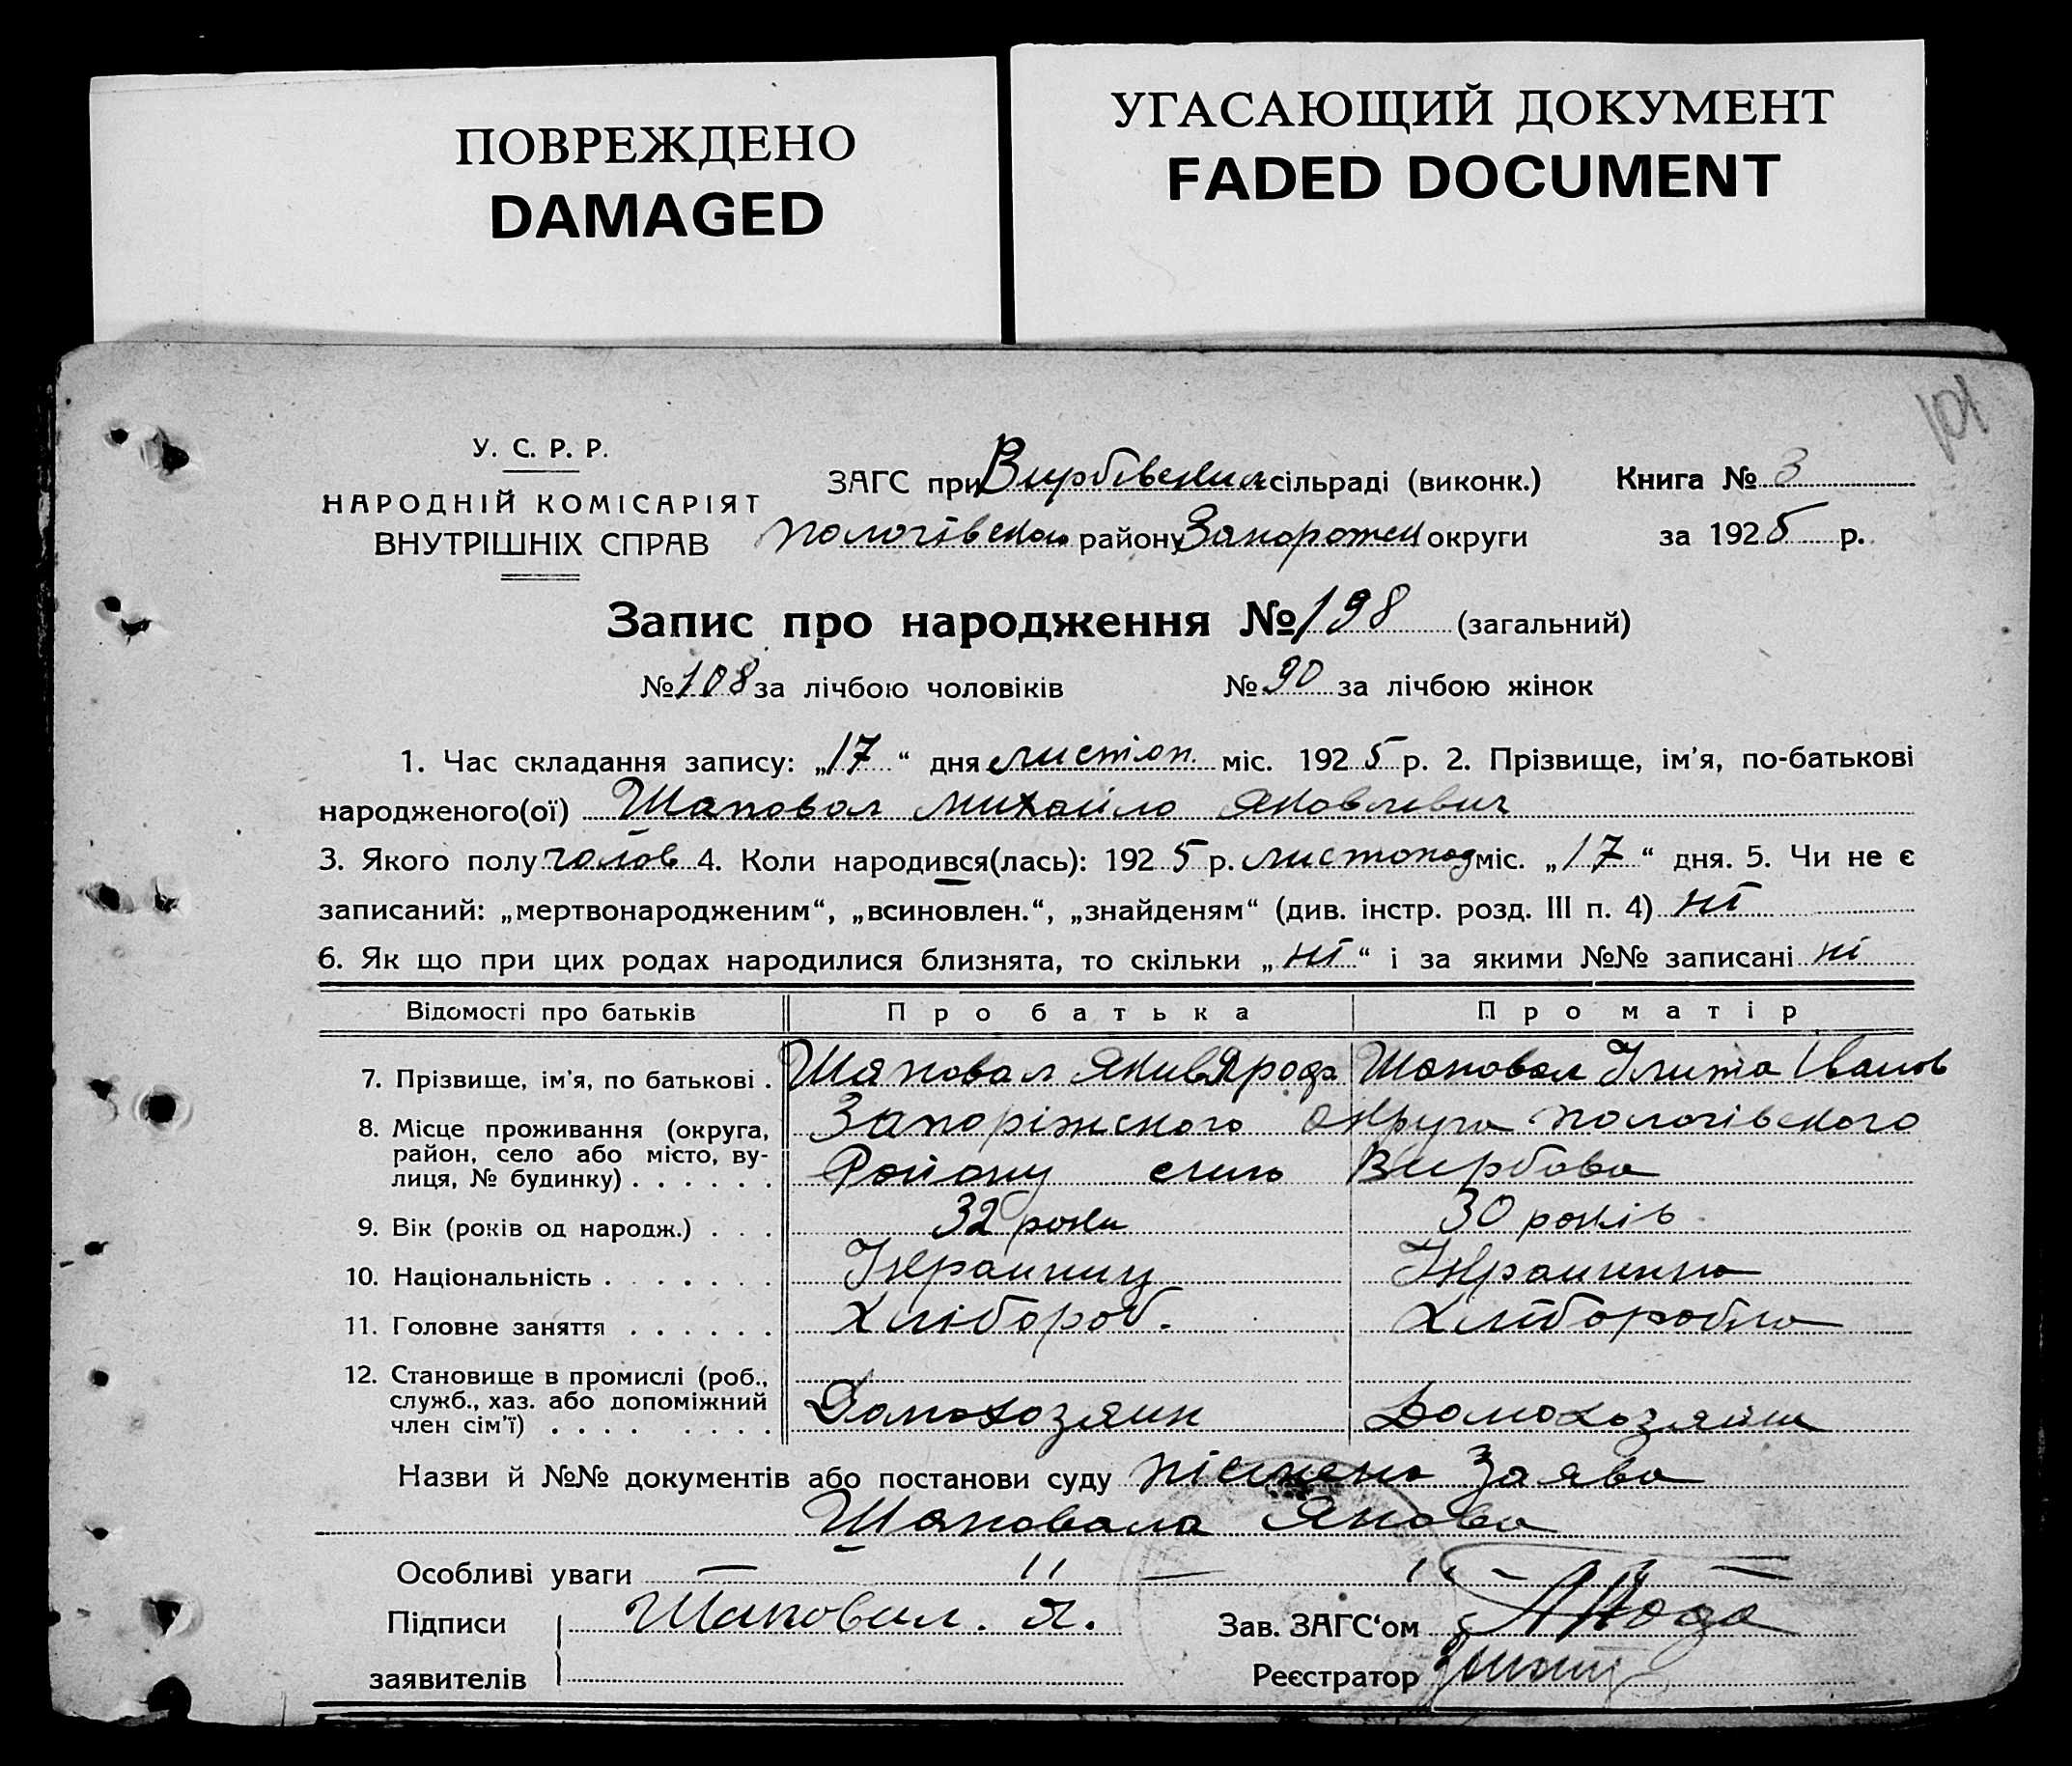 ПОВРЕЖДЕНО
DAMAGED
УГАСАЮЩИЙ ДОКУМЕНТ
FADED DOCUMENT
101
У. С. Р. Р.
НАРОДНІЙ КОМІСАРІЯТ
ВНУТРІШНІХ СПРАВ
ЗАГС при Вирбівский сільраді (виконк.) Книга № 3
Пологівского району Запорожск округи за 1925 р.
Запис про народження № 198 (загальний)
№ 108 за лічбою чоловіків № 90 за лічбою жінок
1. Час складання запису: „17“ дня листоп. міс. 1925 р. 2. Прізвище, ім'я, по-батькові
народженого(ої) Шаповал Михайло Яковлевич
3. Якого полу чолов 4. Коли народився(лась): 1925 р. листопад міс. „17“ дня. 5. Чи не є
записаний: „мертвонародженим“, „всиновлен.“, „знайденям“ (див. інстр. розд. III п. 4) ні
6. Як що при цих родах народилися близнята, то скільки „ні“ і за якими №№ записані ні
Відомості про батьків Про батька Про матір
7. Прізвище, ім'я, по батькові . Шаповал Якив Яроф Шаповал Улита Іванов
8. Місце проживання (округа, Запоріжского округа Пологівского
район, село або місто, ву-
лиця, № будинку) . . . . . . Району село Вирбова
9. Вік (років од народж.) . . . 32 роки 30 років
10. Національність . . . . . . . Украиниц Украинка
11. Головне заняття . . . . . . Хлібороб. Хлібороб��а
12. Становище в промислі (роб.,
служб., хаз. або допоміжний
член сім'ї) . . . . . . . . Домохозяин Домохозяйка
Назви й №№ документів або постанови суду пісмена Заява
Шаповала Якова
Особливі уваги — 11 — 11 —
Підписи Шаповал. Я. Зав. ЗАГС‘ом
заявителів Реєстратор